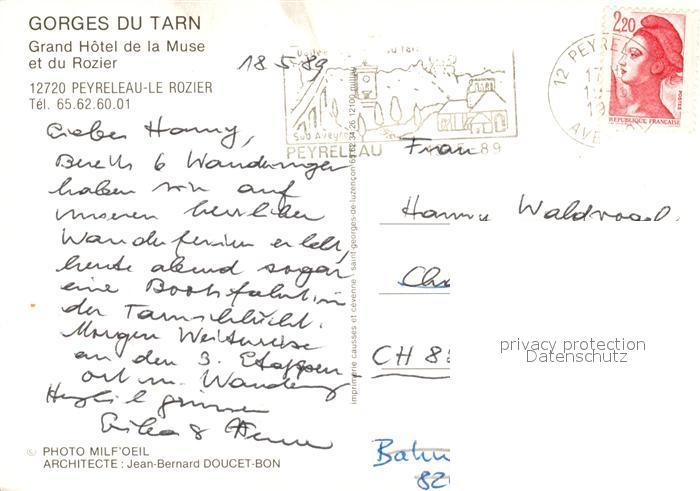 GORGES DU TARN
Grand Hôtel de la Muse
et du Rozier
12720 PEYRELEAU-LE ROZIER
Tél. 65.62.60.01
18.5.89
Liebes Hanny,
Bereits 6 Wanderungen
haben wir auf
unseren herrlichen
Wanderferien erlebt,
heute abend sogar
eine Bootsfahrt in
der Tarnschlucht.
Morgen Weiterreise
an den 3. Etappen-
ort m. Wanderung
Herzlich grüssen
Erika &
© PHOTO MILF'OEIL
ARCHITECTE : Jean-Bernard DOUCET-BON
imprimerie causses et cévennes / saint-georges-de-luzençon / 65 62 34 26 12100 millau
Sud Aveyron
PEYRELEAU
89
12 PEYREL
AVE
2,20
POSTES
REPUBLIQUE FRANÇAISE
Frau
Hanny Waldvogel
CH 82
Bahn
820
privacy protection
Datenschutz